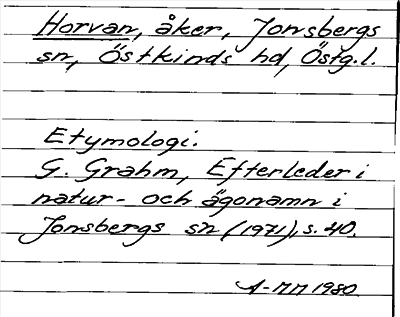 Horvan, åker, Jonsbergs
sn, Östkinds hd, Östg.l.
Etymologi.
G. Grahm, Efterleder i
natur- och ägonamn i
Jonsbergs sn (1971), s. 40.
A-MM 1980